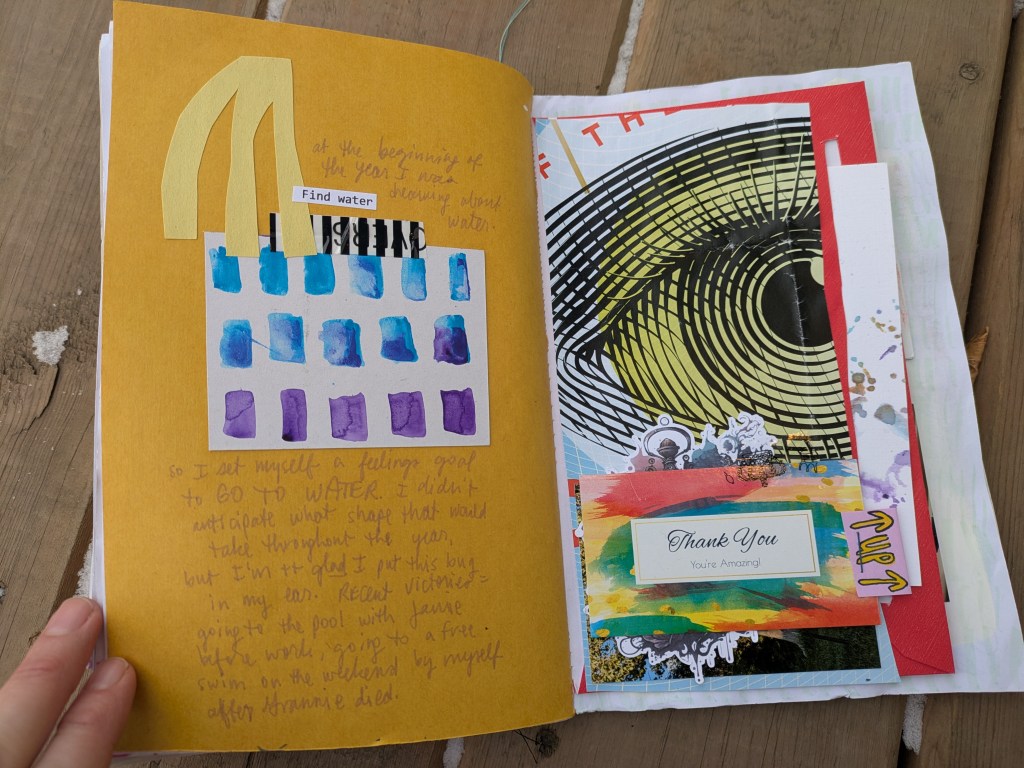 at the beginning of
the year I was
dreaming about
water.
Find water
so I set myself a feelings goal
to GO TO WATER. I didn't
anticipate what shape that would
take throughout the year,
but I'm glad I put this bug
in my ear. RECENT VICTORIES =
going to the pool with
before work, going to a free
swim on the weekend by myself
after died.
THE
Thank You
You're Amazing!